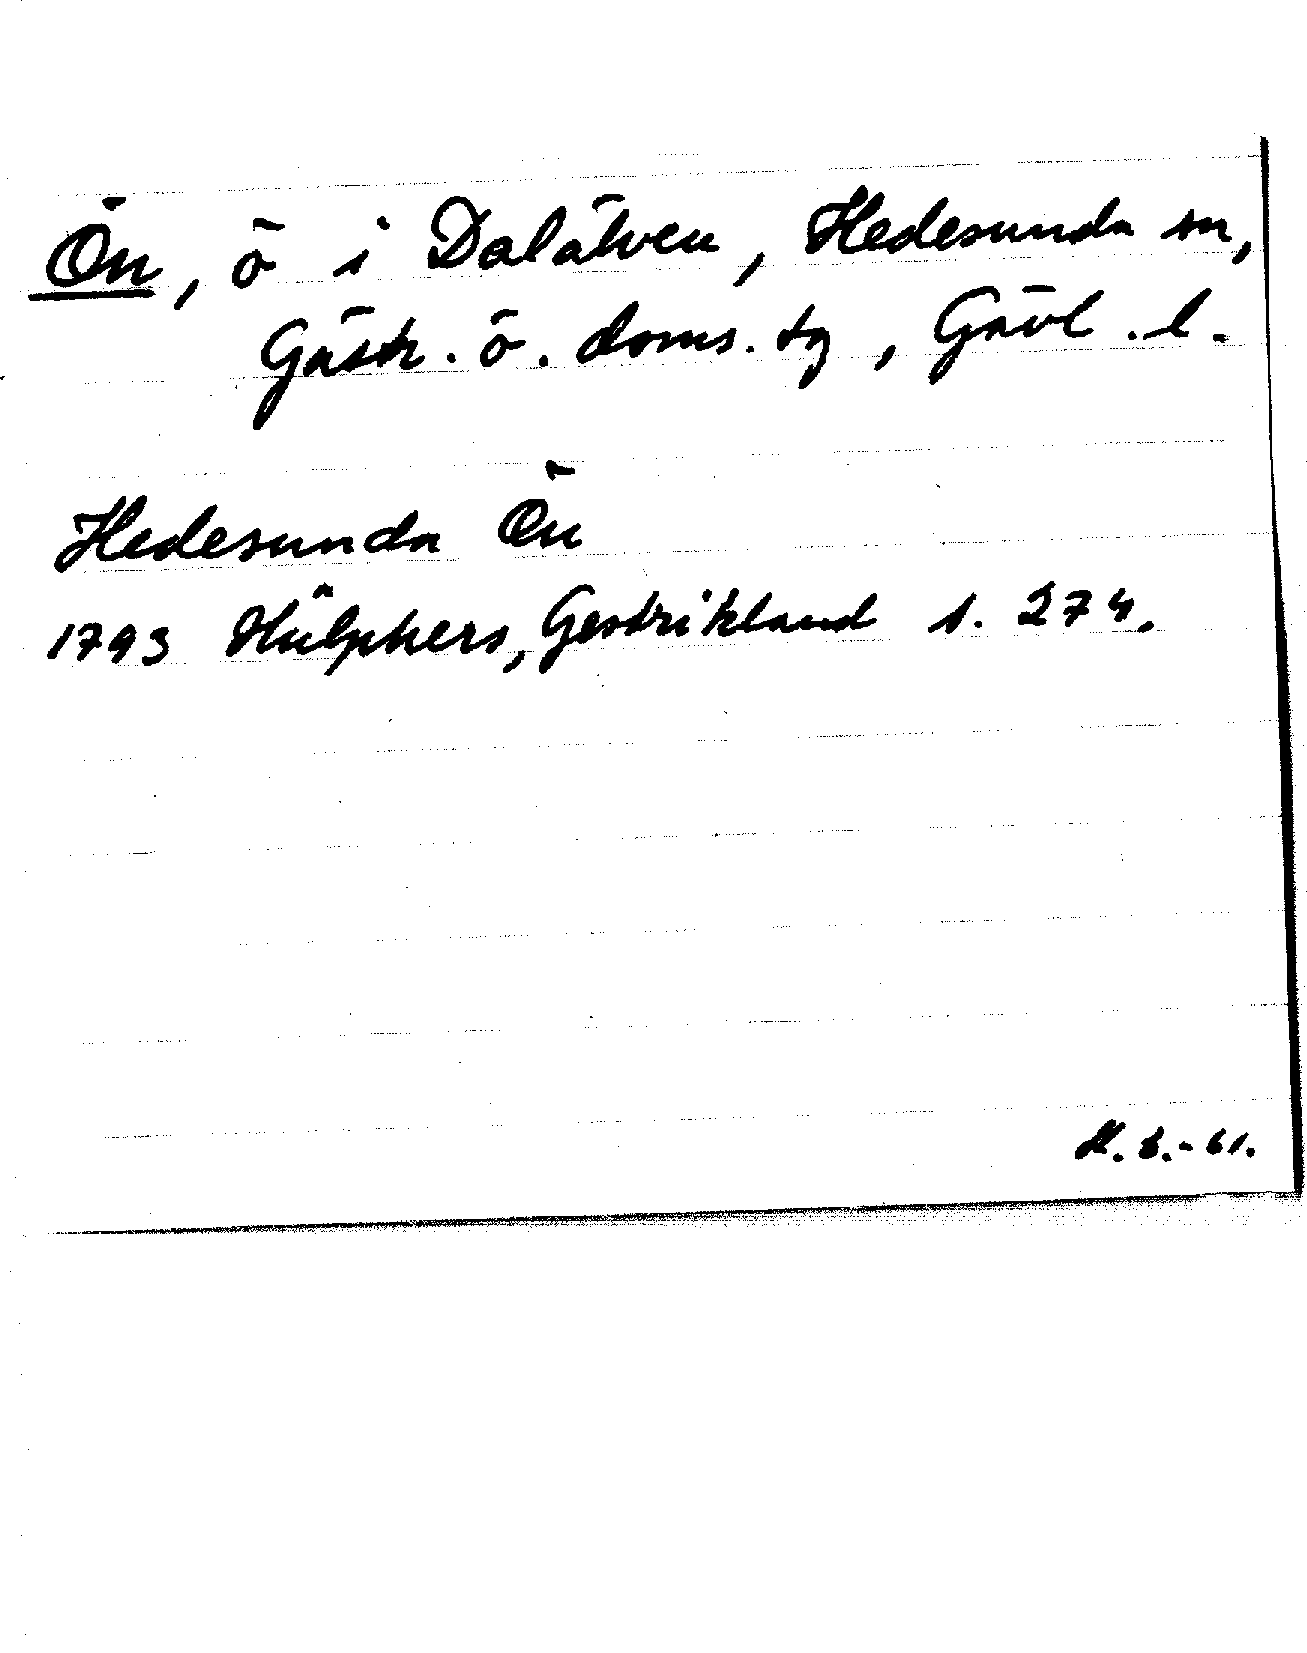 Ön, ö i Dalälven, Hedesunda sn,
Gästr. ö. doms. tg, Gävl. l.
Hedesunda Ön
1793 Hülphers, Gestrikland s. 274.